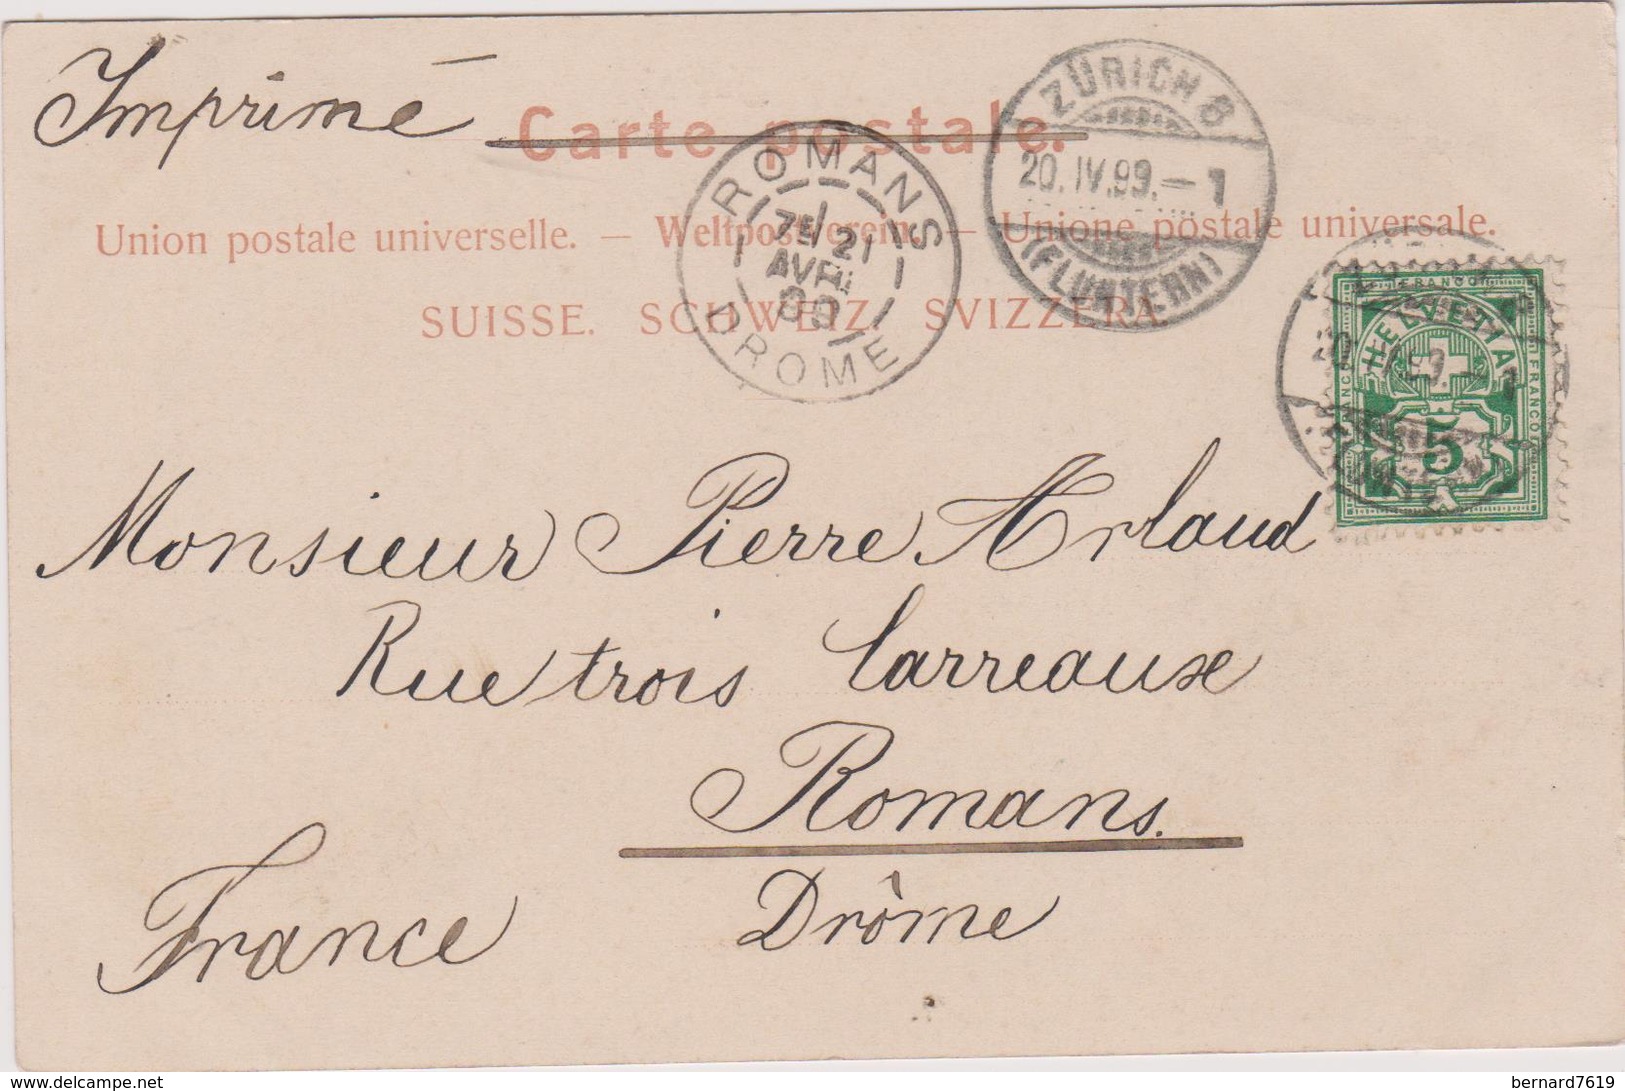 Imprimé
Carte postale.
ZÜRICH 8
20.IV.99.–1
(FLUNTERN)
ROMANS
7E 21
AVRIL
99
DROME
Union postale universelle. — Weltpostverein. — Unione postale universale.
SUISSE. SCHWEIZ. SVIZZERA.
FRANCO
HELVETIA
FRANCO
FRANCO
5
Monsieur Pierre Arlaud
Rue trois Carreaux
Romans.
Drôme
France
http://www.delcampe.net
bernard7619